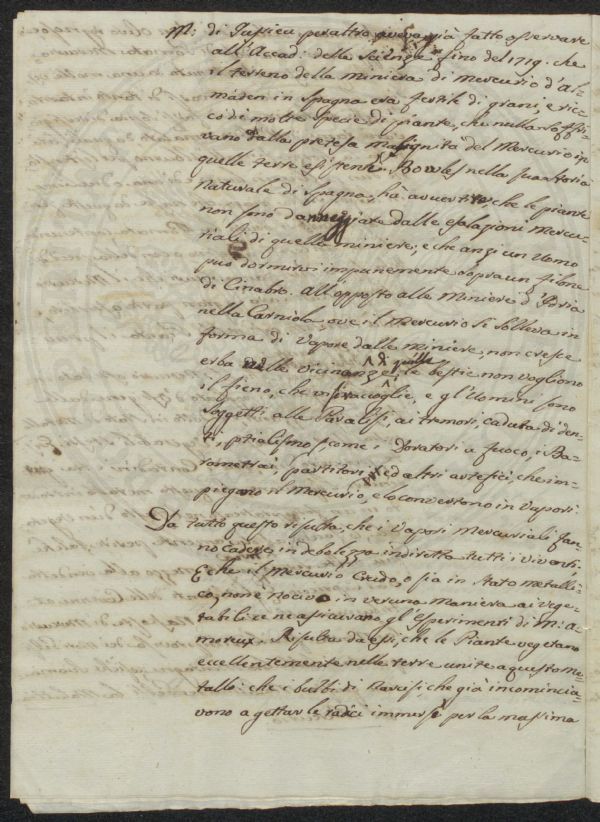 M: di Jusieu peraltro aveva già fatto osservare
all'Accad: delle Scienze fino del 1719. che
il terreno della miniera di Mercurio d'Al-
maden in Spagna era fertile di grani, e ric-
co di molte specie di piante, che nulla soffri-
vano dalla pretesa malignità del Mercurio in
quelle terre esistente. Bowles nella sua storia
naturale di Spagna, hà avvertito, che le piante
non sono danneggiate dalle esalazioni Mercu-
riali di quelle miniere; e che anzi un Uomo
può dormirvi impunemente sopra un filone
di Cinabro. All'opposto alle Miniere d'Idria
nella Carniola, ove il Mercurio si solleva in
forma di Vapore dalle miniere, non cresce
erba nelle vicinanze di quelle, le bestie non vogliono
il fieno, che vi si raccoglie, e gl'Uomini sono
soggetti alle Paralisi, ai tremori, caduta di den-
ti, ptialismo, come i Doratori a fuoco, i Ba-
rometrai, partitori, ed altri artefici, che im-
piegano il Mercurio, e lo convertono in vapori.
Da tutto questo risulta, che i Vapori Mercuriali fan-
no cadere in debolezza indiretta tutti i viventi.
E che il Mercurio Crudo, o sia in stato metalli-
co, non è nocivo in veruna maniera ai vege-
tabili; ce ne assicurano gl'Esperimenti di M: A-
moreux. Risulta da essi, che le Piante vegetano
eccellentemente nelle terre unite a questo me-
tallo: che i bulbi di Narcisi, che già incomincia-
vono a gettar le radici immersi per la massima